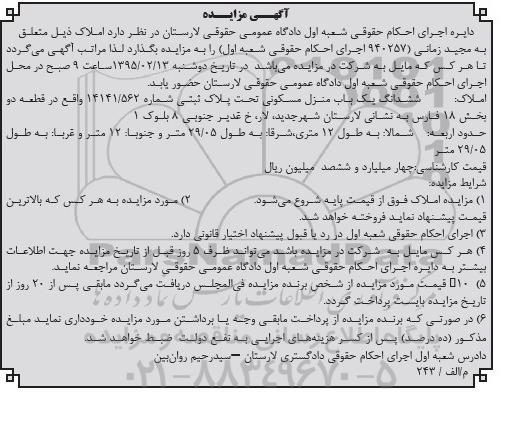 آگهـی مزایـــده
دایـره اجـرای احـکام حقوقـی شـعبه اول دادگاه عمومـی حقوقـی لارسـتان در نظـر دارد امـلاک ذیـل متعلـق
بـه مجیـد زمانـی (۹۴۰۲۵۷ اجـرای احـکام حقوقـی شـعبه اول) را بـه مزایـده بگـذارد لـذا مراتـب آگهـی می‌گـردد
تـا هـر کـس کـه مایـل بـه شـرکت در مزایـده می‌باشـد در تاریـخ دوشـنبه ۱۳۹۵/۰۲/۱۳سـاعت ۹ صبـح در محـل
اجـرای احـکام حقوقـی شـعبه اول دادگاه عمومـی حقوقـی لارسـتان حضـور یابـد.
امـلاک: ششـدانگ یـک بـاب منـزل مسـکونی تحـت پـلاک ثبتـی شـماره ۱۴۱۴۱/۵۶۲ واقـع در قطعـه دو
بخـش ۱۸ فـارس بـه نشـانی لارسـتان شـهرجدید، لار، خ غدیـر جنوبـی ۸ بلـوک ۱
حـدود اربعـه: شـمالا: بـه طـول ۱۲ متری،شـرقا: بـه طـول ۲۹/۰۵ متـر و جنوبـا: ۱۲ متـر و غربـا: بـه طـول
۲۹/۰۵ متـر
قیمت کارشناسی:چهار میلیارد و ششصد میلیون ریال
شرایط مزایده:
۱) مزایـده امـلاک فـوق از قیمـت پایـه شـروع می‌شـود. ۲) مـورد مزایـده بـه هـر کـس کـه بالاتریـن
قیمـت پیشـنهاد نمایـد فروختـه خواهـد شـد.
۳) اجرای احکام حقوقی شعبه اول در رد یا قبول پیشنهاد اختیار قانونی دارد.
۴) هـر کـس مایـل بـه شـرکت در مزایـده باشـد می‌توانـد ظـرف ۵ روز قبـل از تاریـخ مزایـده جهـت اطلاعـات
بیشـتر بـه دایـره اجـرای احـکام حقوقـی شـعبه اول دادگاه عمومـی حقوقـی لارسـتان مراجعـه نمایـد.
۵) ۱۰□ قیمـت مـورد مزایـده از شـخص برنـده مزایـده فی‌المجلـس دریافـت می‌گـردد مابقـی پـس از ۲۰ روز از
تاریـخ مزایـده بایسـت پرداخـت گـردد.
۶) در صورتـی کـه برنـده مزایـده از پرداخـت مابقـی وجـه یـا برداشـتن مـورد مزایـده خـودداری نمایـد مبلـغ
مذکـور (ده درصـد) پـس از کسـر هزینه‌هـای اجرایـی بـه نفـع دولـت ضبـط خواهـد شـد.
دادرس شعبه اول اجرای احکام حقوقی دادگستری لارستان –سیدرحیم روان‌بین
م/الف / ۲۴۳
۰۲۱-۸۸۳۴۹۶۷۰-۵